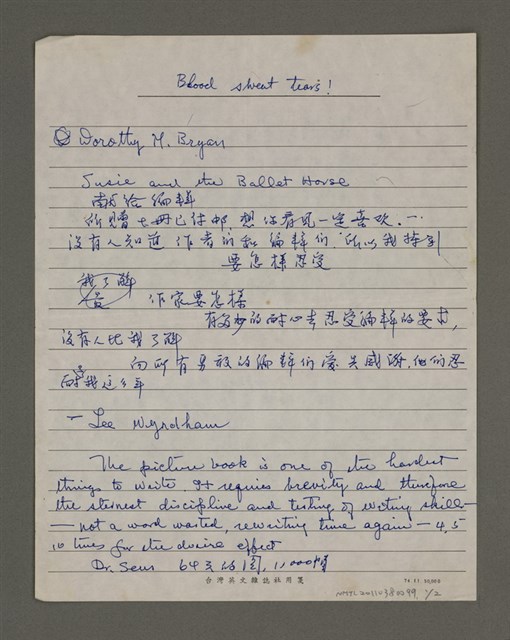 Blood sweat tears!
Dorothy M. Bryan
Susie and the Ballet Horse
給編輯
所贈七冊已付郵 想你看見一定喜欢.
沒有人知道 作者 和 編輯们 所以我
要怎樣忍受
我了解
作家要怎樣
有多少的耐心去忍受編輯的要求,
沒有人比我了解
向所有勇敢的編輯们 感謝.他们忍
耐我这些年
— Lee Wyndham
The picture book is one of the hardest
things to write. It requires brevity and therefore
the sternest discipline and testing of writing skill —
— not a word wasted, rewriting time again — 4, 5
10 times for the desire effect
Dr. Seus 64天的間, 1,000幅
台灣英文雜誌社用箋
74.11 10,000
NMTL20110380299 1/2